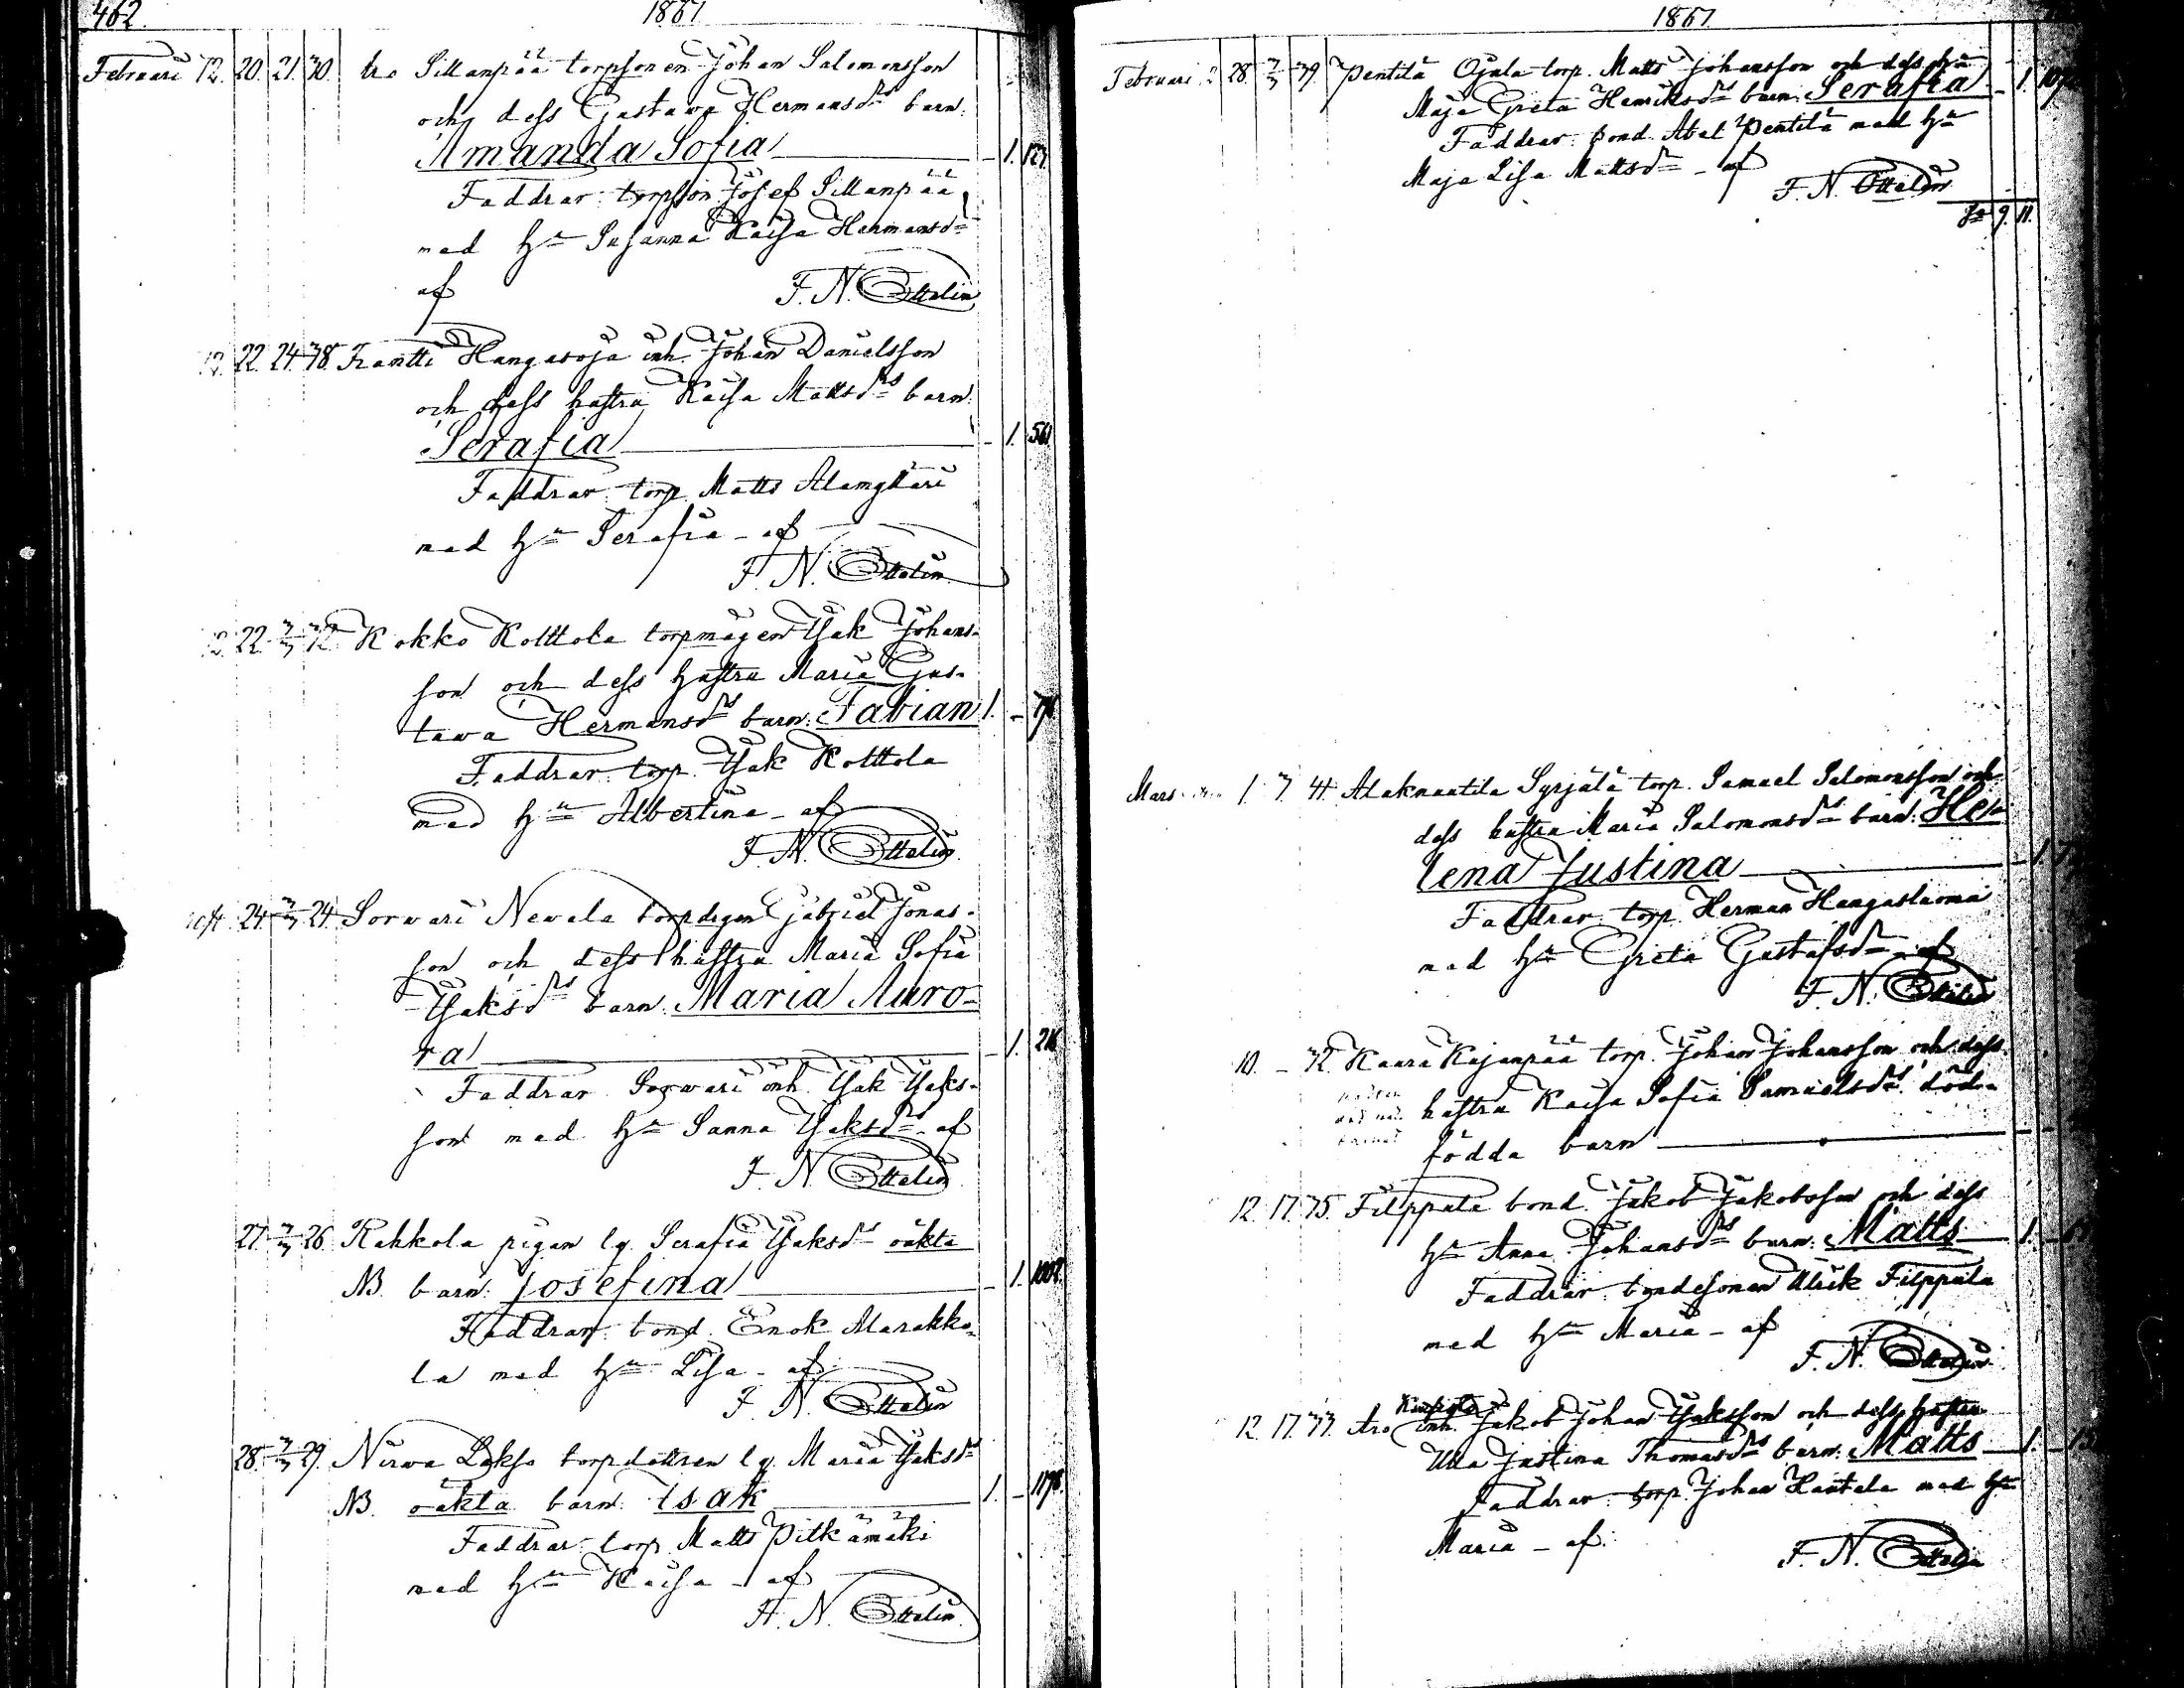 462 1867.
Februari 12. 20. 21. 30. Sillanpää torpsonen Johan Salomonsson
och dess Gustava Hermansdrs barn:
Amanda Sofia — 1.
Faddrar: torpson Josef Sillanpää
med hu Susanna Kaisa Hermansdr
af F. N. Ottelin
12. 22. 24. 78. Frantti Hangasoja inh. Johan Danielsson
och dess hustru Kaisa Mattsdrs barn:
Serafia — 1. 561.
Faddrar: torp. Matts Alamykäri
med hu Serafia – af
F. N. Ottelin
22. Kokko Kolttola torpmågen Isak Johans-
son och dess hustru Maria Gus-
tava Hermansdrs barn: Fabian 1. –
Faddrar: torp. Isak Kolttola
med hu Albertina – af
F. N. Ottelin
24. 2/3 24. Sorvari Nevala Gabriel Jonas-
son och dess hustru Maria Sofia
Isaksdrs barn: Maria Auro-
ra — 1. 216
Faddrar Sorvari inh. Isak Isaks-
son med hu Sanna Isaksdr – af
F. N. Ottelin
27. 2/3 26. Rahkola pigan lg. Serafia Isaksdrs oäkta
NB. barn: Josefina — 1. 1002.
Faddrar: bond. Enok Marakko-
la med hu Lisa – af
F. N. Ottelin
28. 2/3 29. Nirva Lakso torpdottren lg. Maria Isaksdrs
NB. oäkta barn: Isak — 1. – 1178.
Faddrar: torp. Matts Pitkämäki
med hu Kaisa – af
F. N. Ottelin
1867.
Februari 28. 39. Pentilä Ojala torp. Matts Johansson och dess hu
Maja Greta Henriksdrs barn: Serafia – 1.
Faddrar: bond. Abel Pentilä med hu
Maja Lisa Mattsdr – af
F. N. Ottelin
9. 11.
Mars 1. 7. 41. Alaknuutila Syrjälä torp. Samuel Salomonsson och
dess hustru Maria Salomonsdrs barn: He-
lena Justina — 1.
Faddrar: torp. Herman Hangasluoma
med hu Greta Gustafsdr – af
F. N. Ottelin
10. – 72. Kaara Kajanpää torp. Johan Johansson och dess
hustru Kaisa Sofia Samuelsdrs död-
födda barn —
12. 17. 75. Filppula bond. Jakob Jakobsson och dess
hu Anna Johansdrs barn: Matts — 1. –
Faddrar: bondesonen Ulrik Filppula
med hu Maria – af
F. N. Ottelin
12. 17. 77. Aro inh. Jakob Johan Isaksson och dess hustru
Ulla Justina Thomasdrs barn: Matts — 1. –
Faddrar: torp. Johan Hautala med hu
Maria – af.
F. N. Ottelin